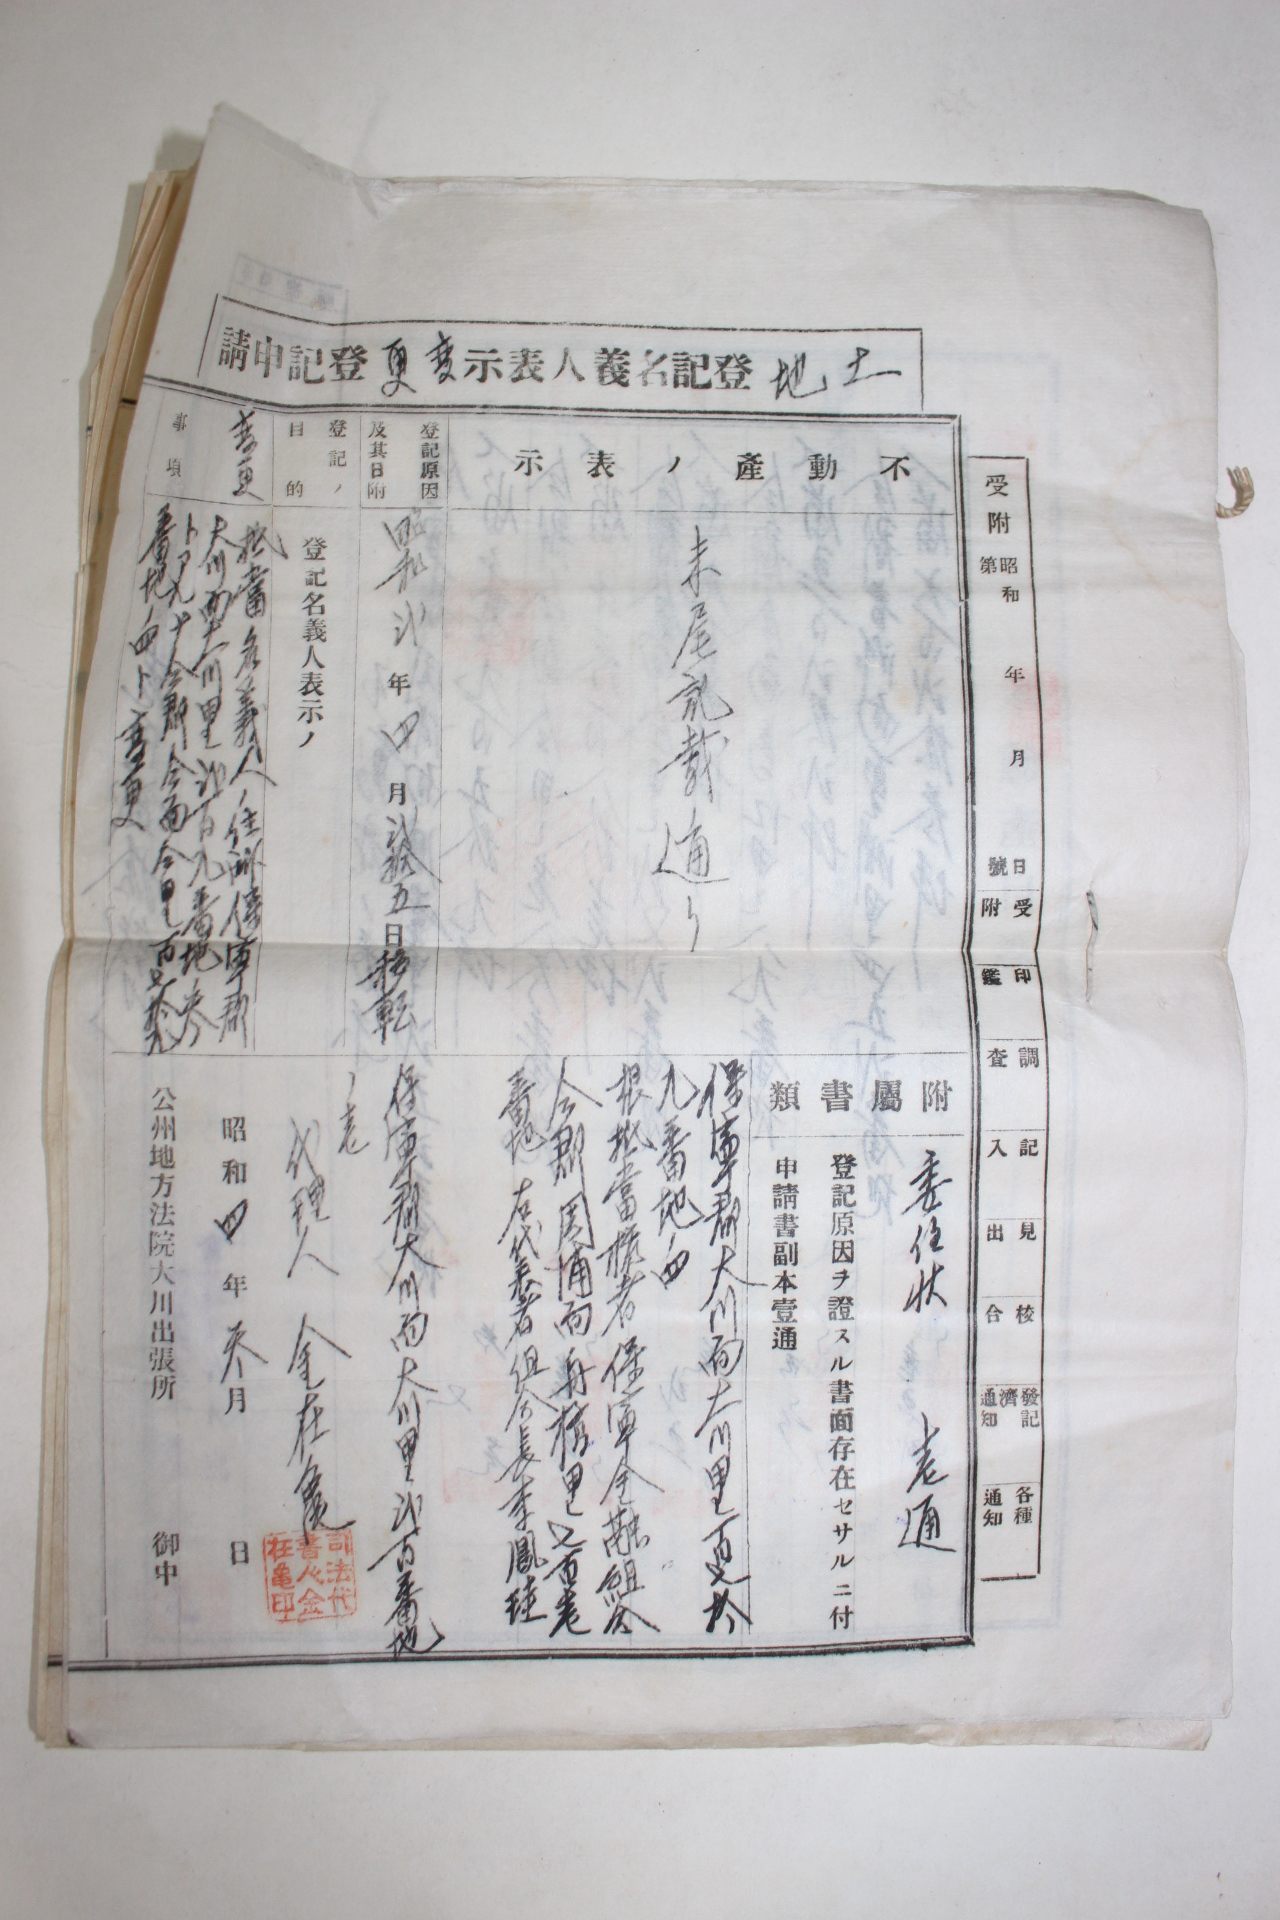 土地登記名義人表示變更登記申請
受附 昭和 年 月 日
第 號
受附
印鑑
調査
記入
見出
校合
登記濟通知
各種通知
不動產ノ表示
末尾記載ノ通リ
登記原因及其日附
昭和 年四月貳拾五日移轉
登記ノ目的
登記名義人表示ノ
變更
事項
抵當名義人ノ住所保寧郡
大川面大川里 百九番地ノ參
番地ノ四ト變更
附屬書類
委任狀 壱通
登記原因ヲ證スル書面存在セサルニ付
申請書副本壹通
保寧郡大川面大川里百
九番地ノ四
根抵當權者 保寧金融組合
仝郡周浦面舟橋里 百壱
番地 右代表者組合長李鳳珪
保寧郡大川面大川里 百番地
ノ壱
代理人 金在
司法代書人金在龜印
昭和四年 月 日
公州地方法院大川出張所 御中